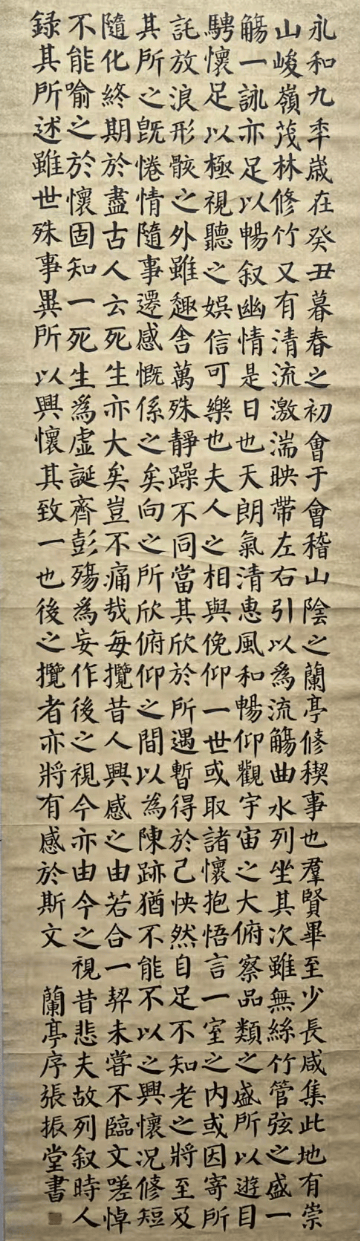 永和九秊歲在癸丑暮春之初會于會稽山陰之蘭亭修稧事也羣賢畢至少長咸集此地有崇
山峻嶺茂林修竹又有清流激湍映帶左右引以為流觴曲水列坐其次雖無絲竹管弦之盛一
觴一詠亦足以暢叙幽情是日也天朗氣清惠風和暢仰觀宇宙之大俯察品類之盛所以遊目
騁懷足以極視聽之娛信可樂也夫人之相與俛仰一世或取諸懷抱悟言一室之内或因寄所
託放浪形骸之外雖趣舍萬殊靜躁不同當其欣於所遇暫得於己快然自足不知老之將至及
其所之既惓情隨事遷感慨係之矣向之所欣俯仰之間以為陳跡猶不能不以之興懷況修短
隨化終期於盡古人云死生亦大矣豈不痛哉每攬昔人興感之由若合一契未嘗不臨文嗟悼
不能喻之於懷固知一死生為虛誕齊彭殤為妄作後之視今亦由今之視昔悲夫故列叙時人
錄其所述雖世殊事異所以興懷其致一也後之攬者亦將有感於斯文 蘭亭序張振堂書